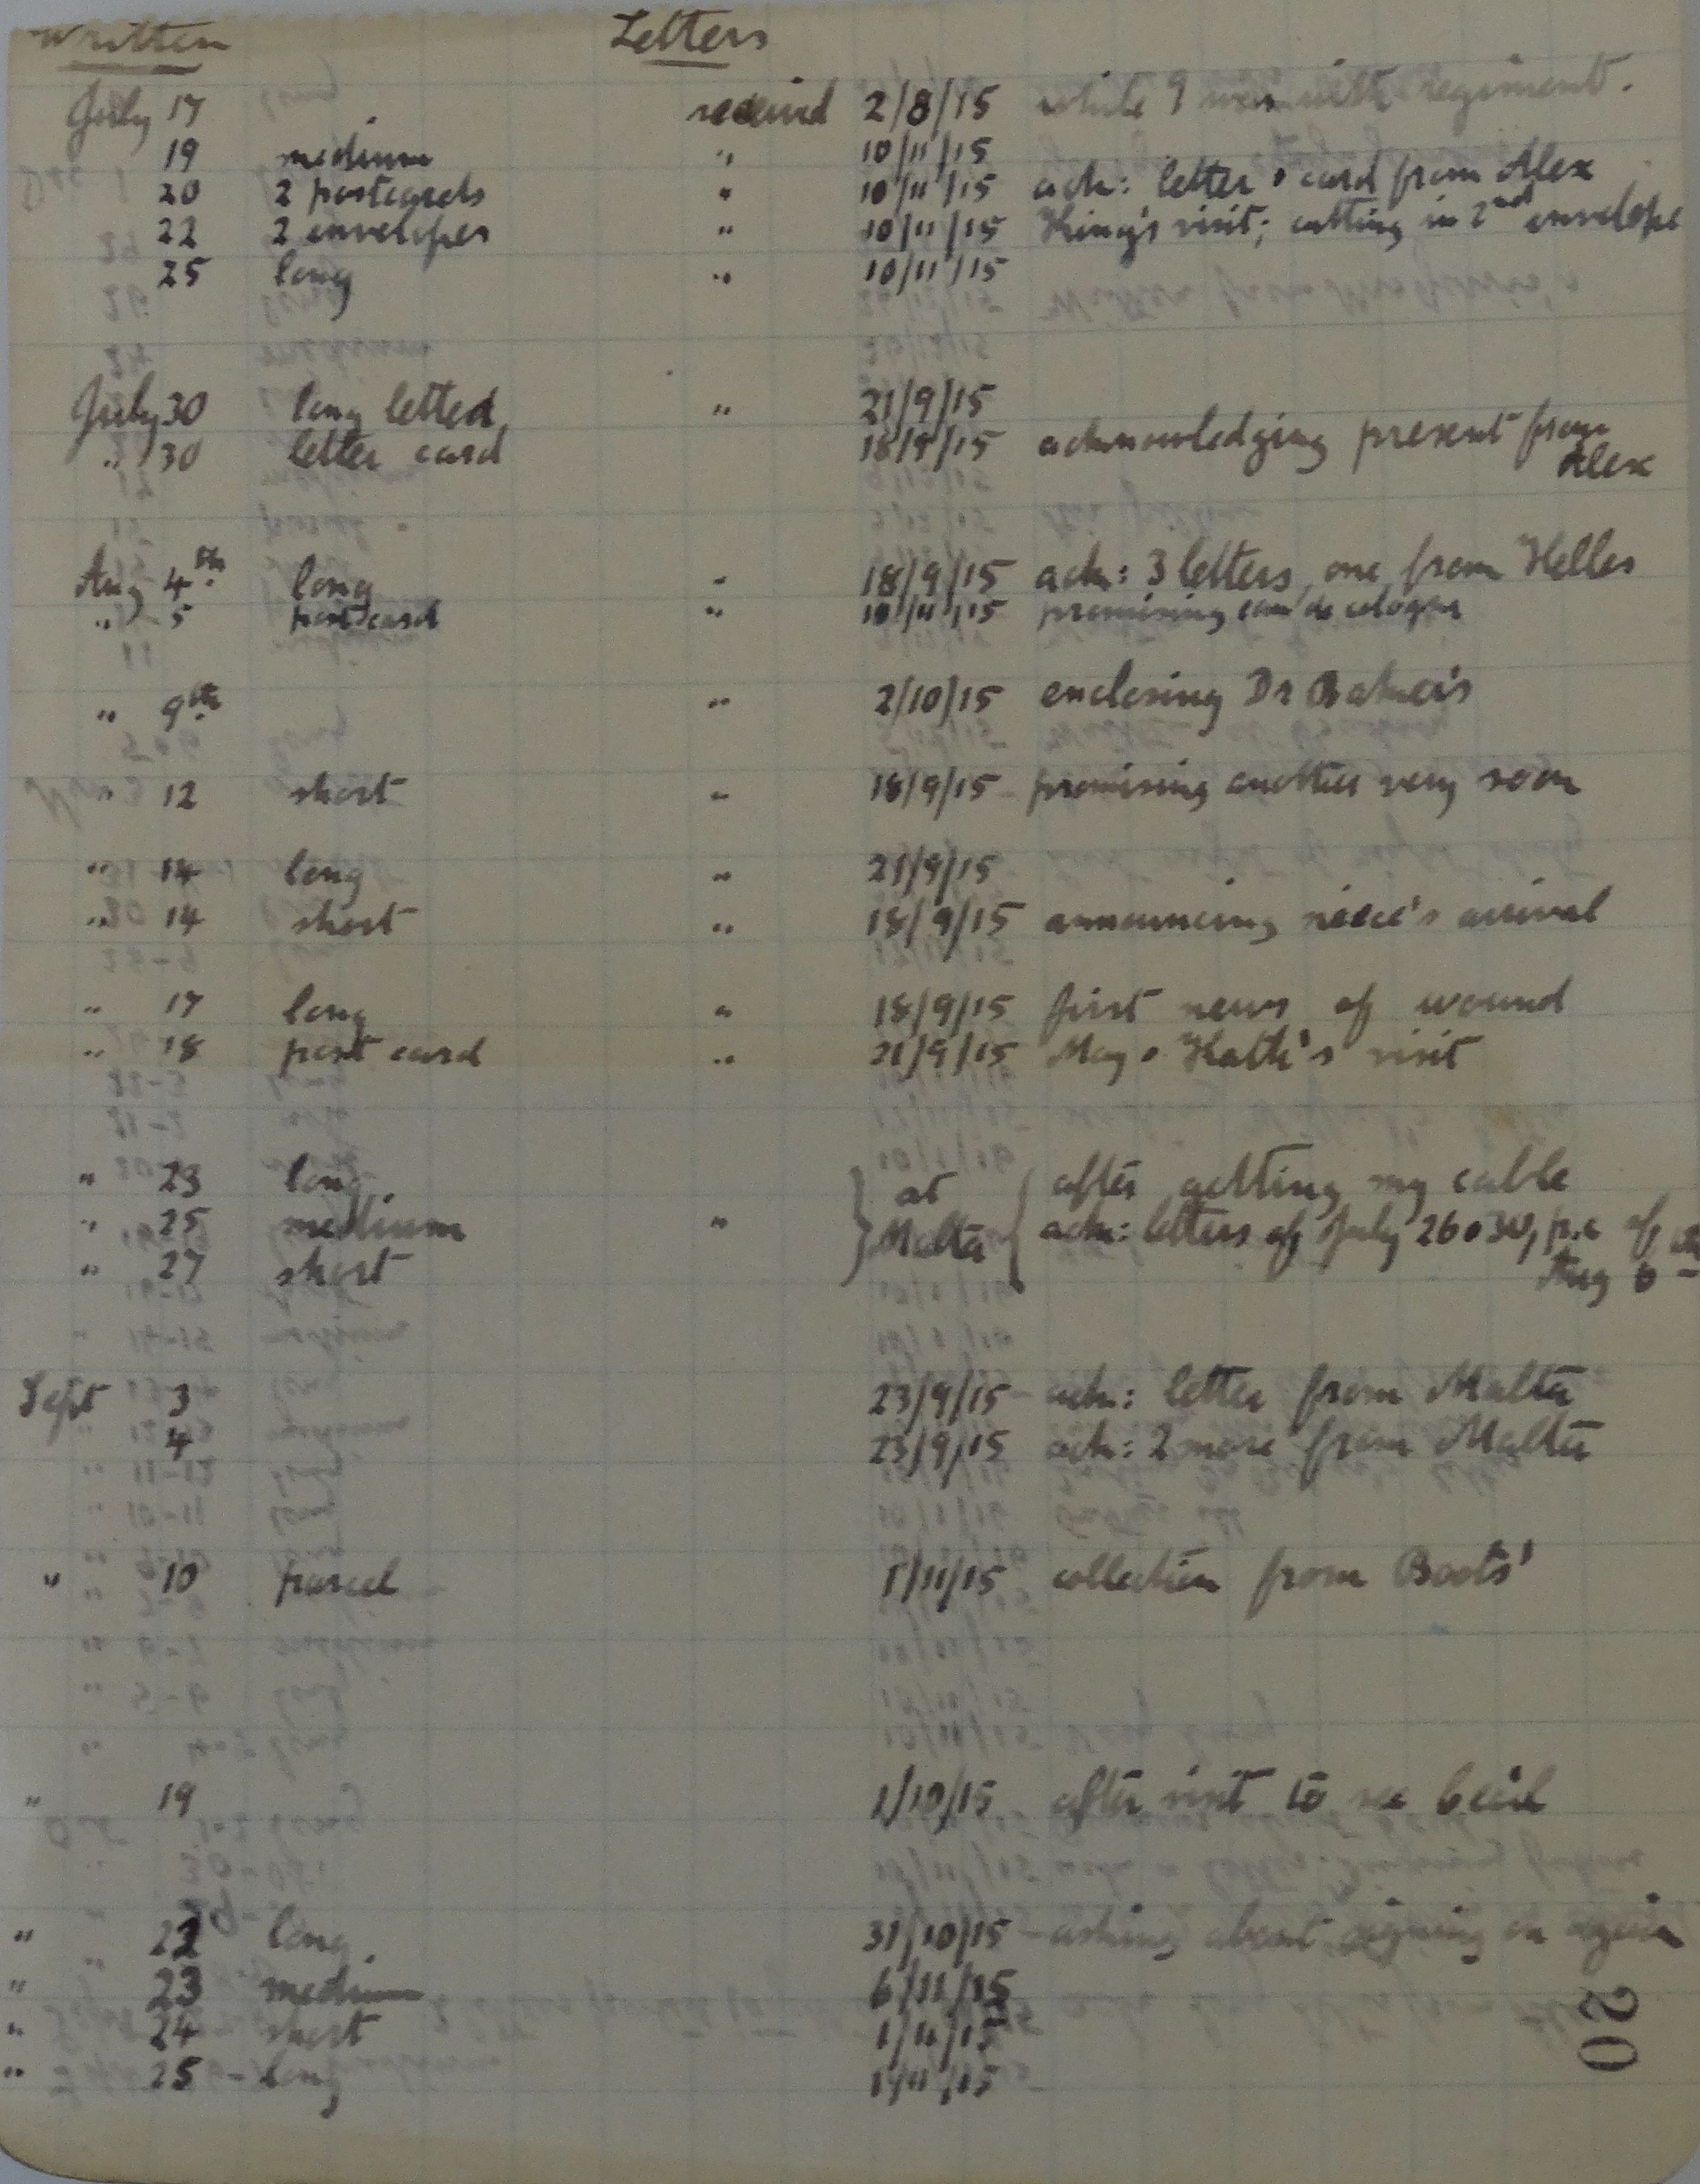 Written Letters
July 17 received 2/8/15 while I was with regiment.
19 medium " 10/11/15
20 2 postcards " 10/11/15 ack: letter & card from Alex
22 2 envelopes " 10/11/15 King's visit; cutting in 2nd envelope
25 long " 10/11/15
July 30 long letter " 21/9/15
" 30 letter card 18/9/15 acknowledging present from
Alex
Aug 4th long " 18/9/15 ack: 3 letters, one from Helles
" 5 postcard " 10/11/15 promising eau de cologne
" 9th " 2/10/15 enclosing Dr
" 12 short " 18/9/15 - promising another very soon
" 14 long " 21/9/15
" 14 short " 18/9/15 announcing niece's arrival
" 17 long " 18/9/15 first news of wound
" 18 post card " 21/9/15 May & Kath's visit
" 23 long at after getting my cable
" 25 medium " Malta ack: letters of July 26 & 30, p.c of
" 27 short Aug 6th
Sept 3 23/9/15 - ack: letter from Malta
4 23/9/15 ack: 2 more from Malta
" 10 parcel 1/11/15 collection from Boots'
" 19 1/10/15 after visit to see Cecil
" 22 long 31/10/15 - asking about signing on again
" 23 medium 6/11/15
" 24 short 1/11/15
" 25 - long 1/11/15 -
20